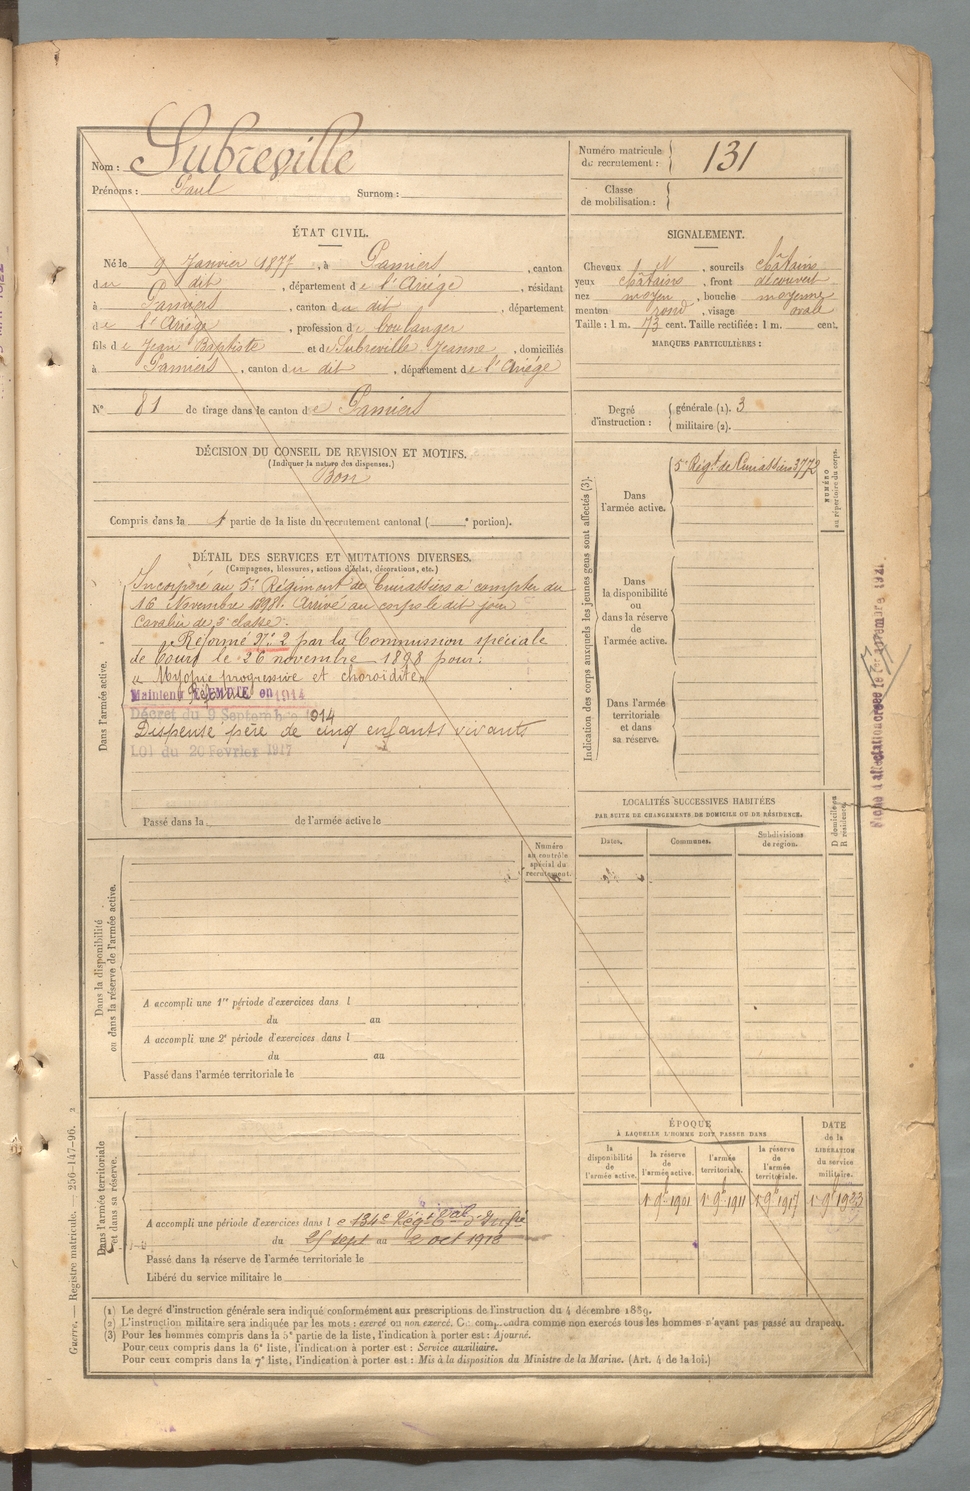 Nom : Subreville
Prénoms : Paul Surnom :
Numéro matricule du recrutement : 131
Classe de mobilisation :
ÉTAT CIVIL.
Né le 9 Janvier 1877, à Pamiers, canton
du dit, département de l'Ariège, résidant
à Pamiers, canton du dit, département
de l'Ariège, profession de boulanger
fils de Jean Baptiste et de Subreville Jeanne, domiciliés
à Pamiers, canton du dit, département de l'Ariège
N° 81 de tirage dans le canton de Pamiers
SIGNALEMENT.
Cheveux et, sourcils châtains
yeux châtains, front découvert
nez moyen, bouche moyenne
menton rond, visage ovale
Taille : 1 m. 73 cent. Taille rectifiée : 1 m. cent.
MARQUES PARTICULIÈRES :
Degré d'instruction : générale (1). 3
militaire (2).
DÉCISION DU CONSEIL DE REVISION ET MOTIFS.
(Indiquer la nature des dispenses.)
Bon
Compris dans la 1 partie de la liste du recrutement cantonal ( e portion).
DÉTAIL DES SERVICES ET MUTATIONS DIVERSES.
(Campagnes, blessures, actions d'éclat, décorations, etc.)
Dans l'armée active.
Incorporé au 5e Régiment de Cuirassiers à compter du
16 Novembre 1898. Arrivé au corps le dit jour
Cavalier de 2e classe.
Réformé N° 2 par la Commission spéciale
de Tours le 26 novembre 1898 pour :
"Myopie progressive et choroïdite"
Maintenu réformé en 1914
Décret du 9 Septembre 1914
Dispensé père de cinq enfants vivants
Loi du 20 Février 1917
Passé dans la de l'armée active le
Indication des corps auxquels les jeunes gens sont affectés (3).
Dans l'armée active.
5e Régt de Cuirassiers 3772
NUMÉRO au répertoire du corps.
Dans la disponibilité ou dans la réserve de l'armée active.
Dans l'armée territoriale et dans sa réserve.
Fiche d'affectation 1921.
LOCALITÉS SUCCESSIVES HABITÉES
PAR SUITE DE CHANGEMENTS DE DOMICILE OU DE RÉSIDENCE.
Dates.
Communes.
Subdivisions de région.
D domicile ou R résidence.
Numéro au contrôle spécial du recrutement.
Dans la disponibilité ou dans la réserve de l'armée active.
A accompli une 1re période d'exercices dans l
du au
A accompli une 2e période d'exercices dans l
du au
Passé dans l'armée territoriale le
Dans l'armée territoriale et dans sa réserve.
A accompli une période d'exercices dans le 134e Régt d'Infie
du 25 sept au 2 oct 1913
Passé dans la réserve de l'armée territoriale le
Libéré du service militaire le
ÉPOQUE
À LAQUELLE L'HOMME DOIT PASSER DANS
la disponibilité de l'armée active.
la réserve de l'armée active.
l'armée territoriale.
la réserve de l'armée territoriale.
DATE de la LIBÉRATION du service militaire.
1er 9bre 1901
1er 9bre 1911
1er 9bre 1917
1er 9bre 1923
(1) Le degré d'instruction générale sera indiqué conformément aux prescriptions de l'instruction du 4 décembre 1889.
(2) L'instruction militaire sera indiquée par les mots : exercé ou non exercé. On comprendra comme non exercés tous les hommes n'ayant pas passé au drapeau.
(3) Pour les hommes compris dans la 5e partie de la liste, l'indication à porter est : Ajourné.
Pour ceux compris dans la 6e liste, l'indication à porter est : Service auxiliaire.
Pour ceux compris dans la 7e liste, l'indication à porter est : Mis à la disposition du Ministre de la Marine. (Art. 4 de la loi.)
Guerre. — Registre matricule. — 256-147-96. 2